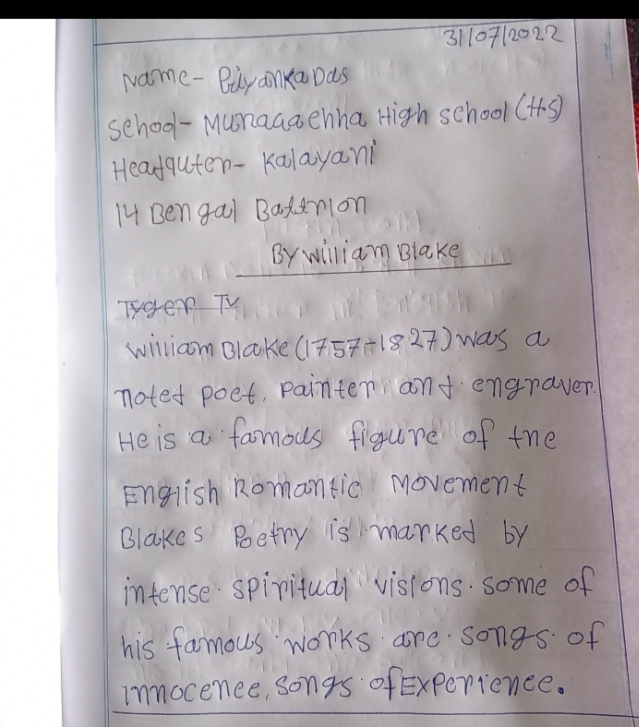 31/07/2022
Name- Priyanka Das
School- Munagacchha High school (H.S)
Headquter- Kalayani
14 Bengal Battrlon
By William Blake
Tyger Ty
William Blake (1757-1827) was a
noted poet, painter and engraver.
He is a famous figure of the
English Romantic Movement
Blakes Poetry is marked by
intense spiritual visions. some of
his famous works are songs of
innocence, songs of Experience.